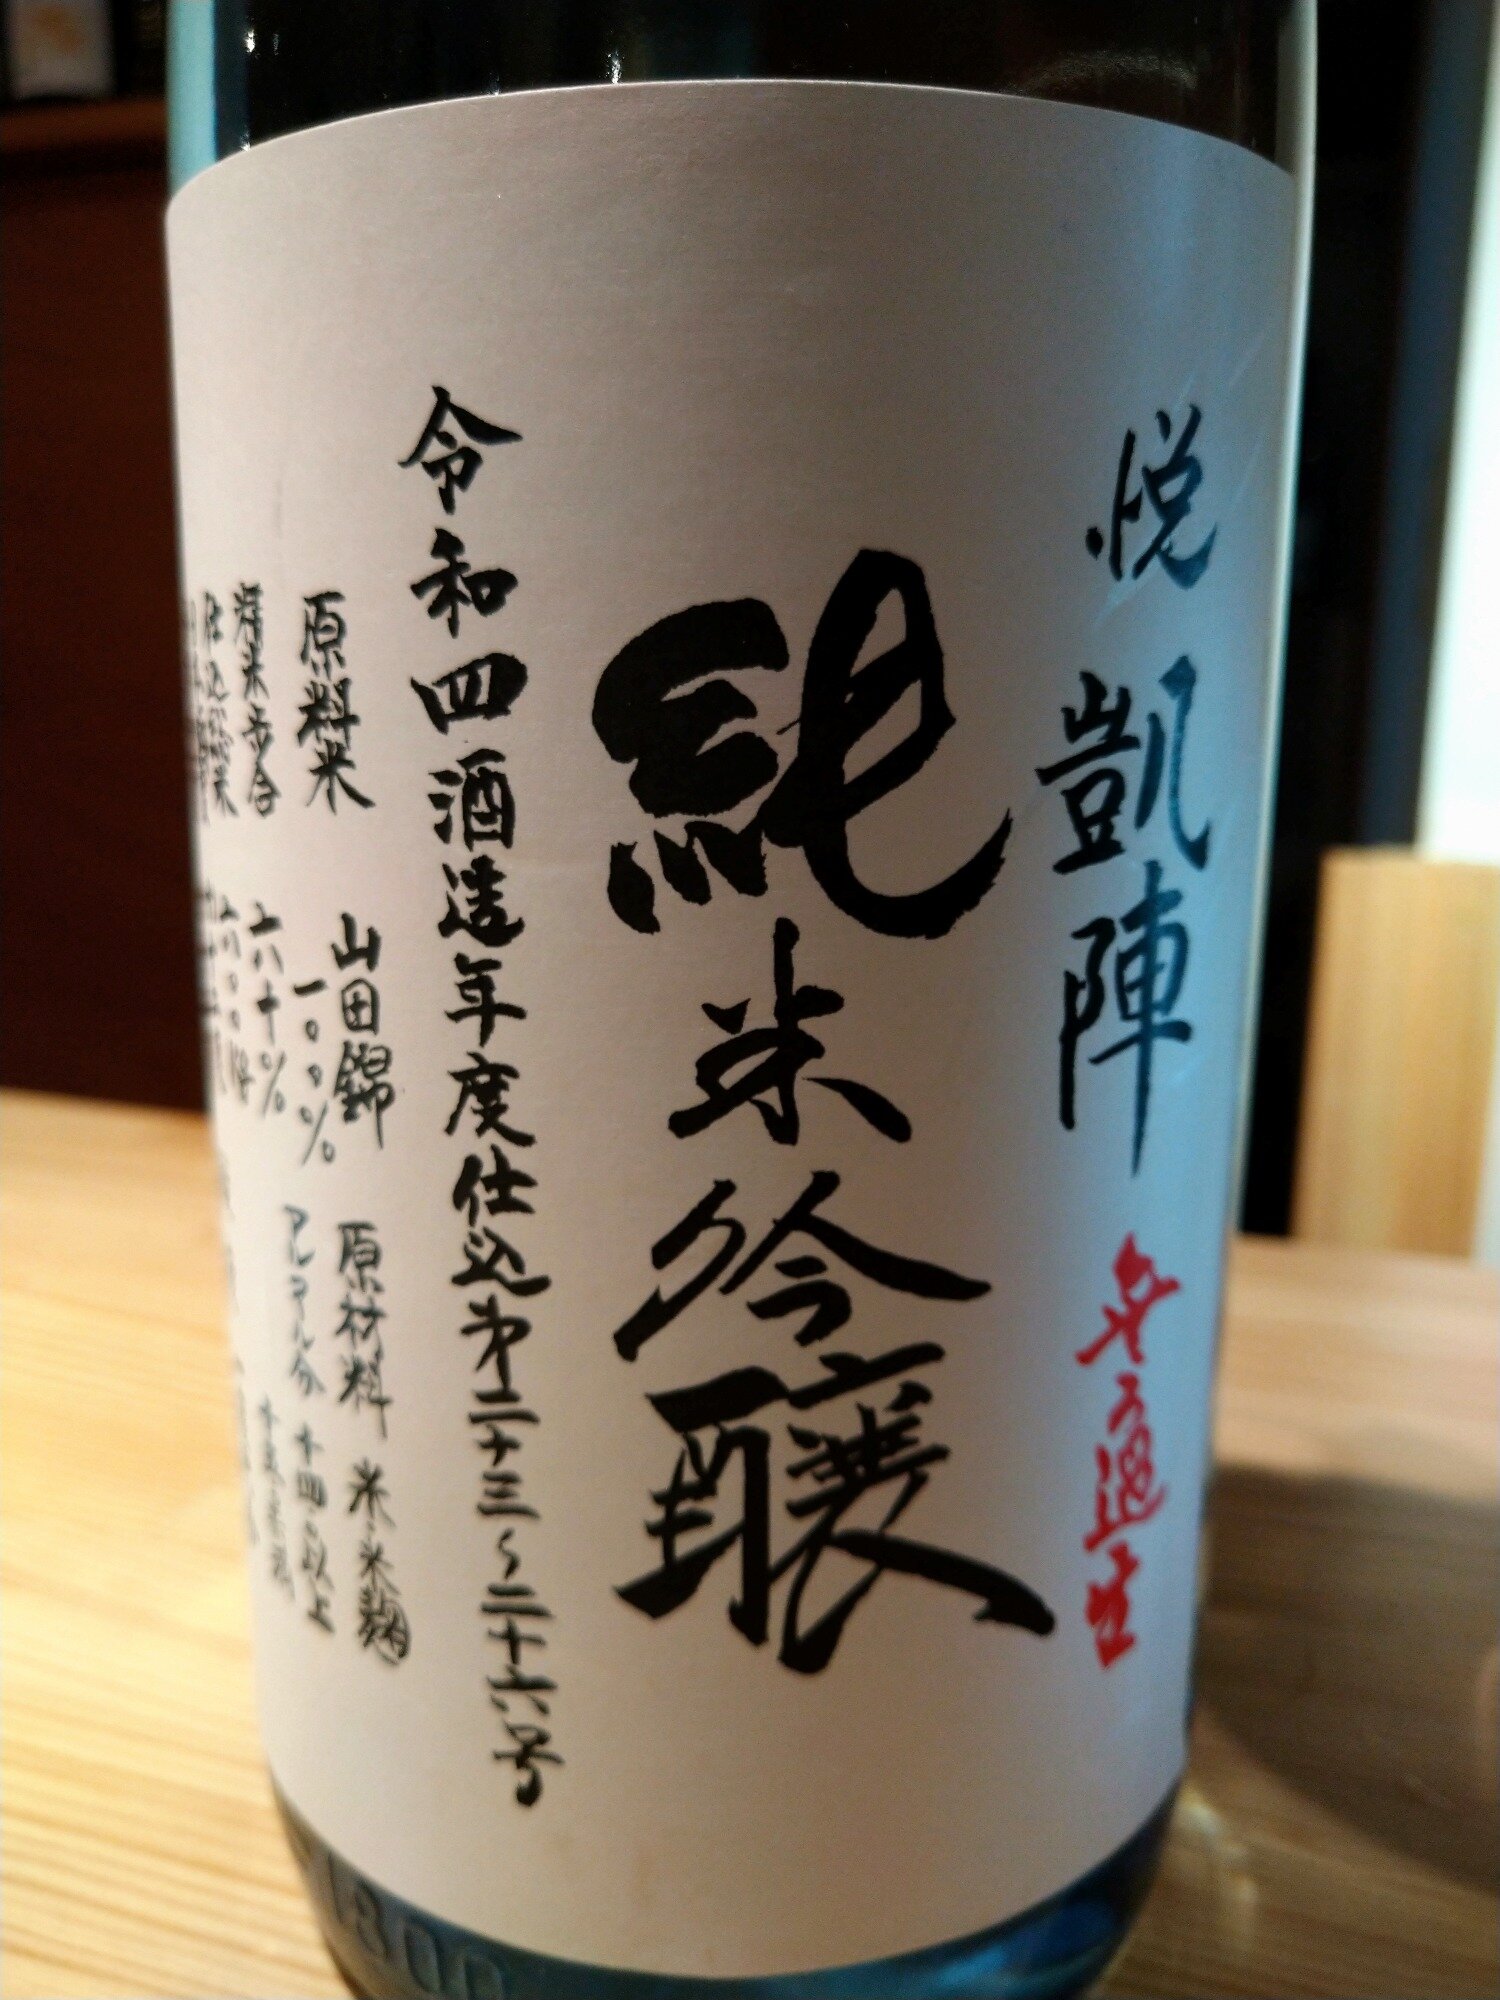 悦 凱陣 無ろ過生
純米吟醸
令和四酒造年度仕込第二十三〜二十六号
原料米 山田錦 原材料 米・米麹
一〇〇% アルコール分 十四・以上
精米歩合 六十% 十五・未満
仕込総米 六〇〇kg
1800